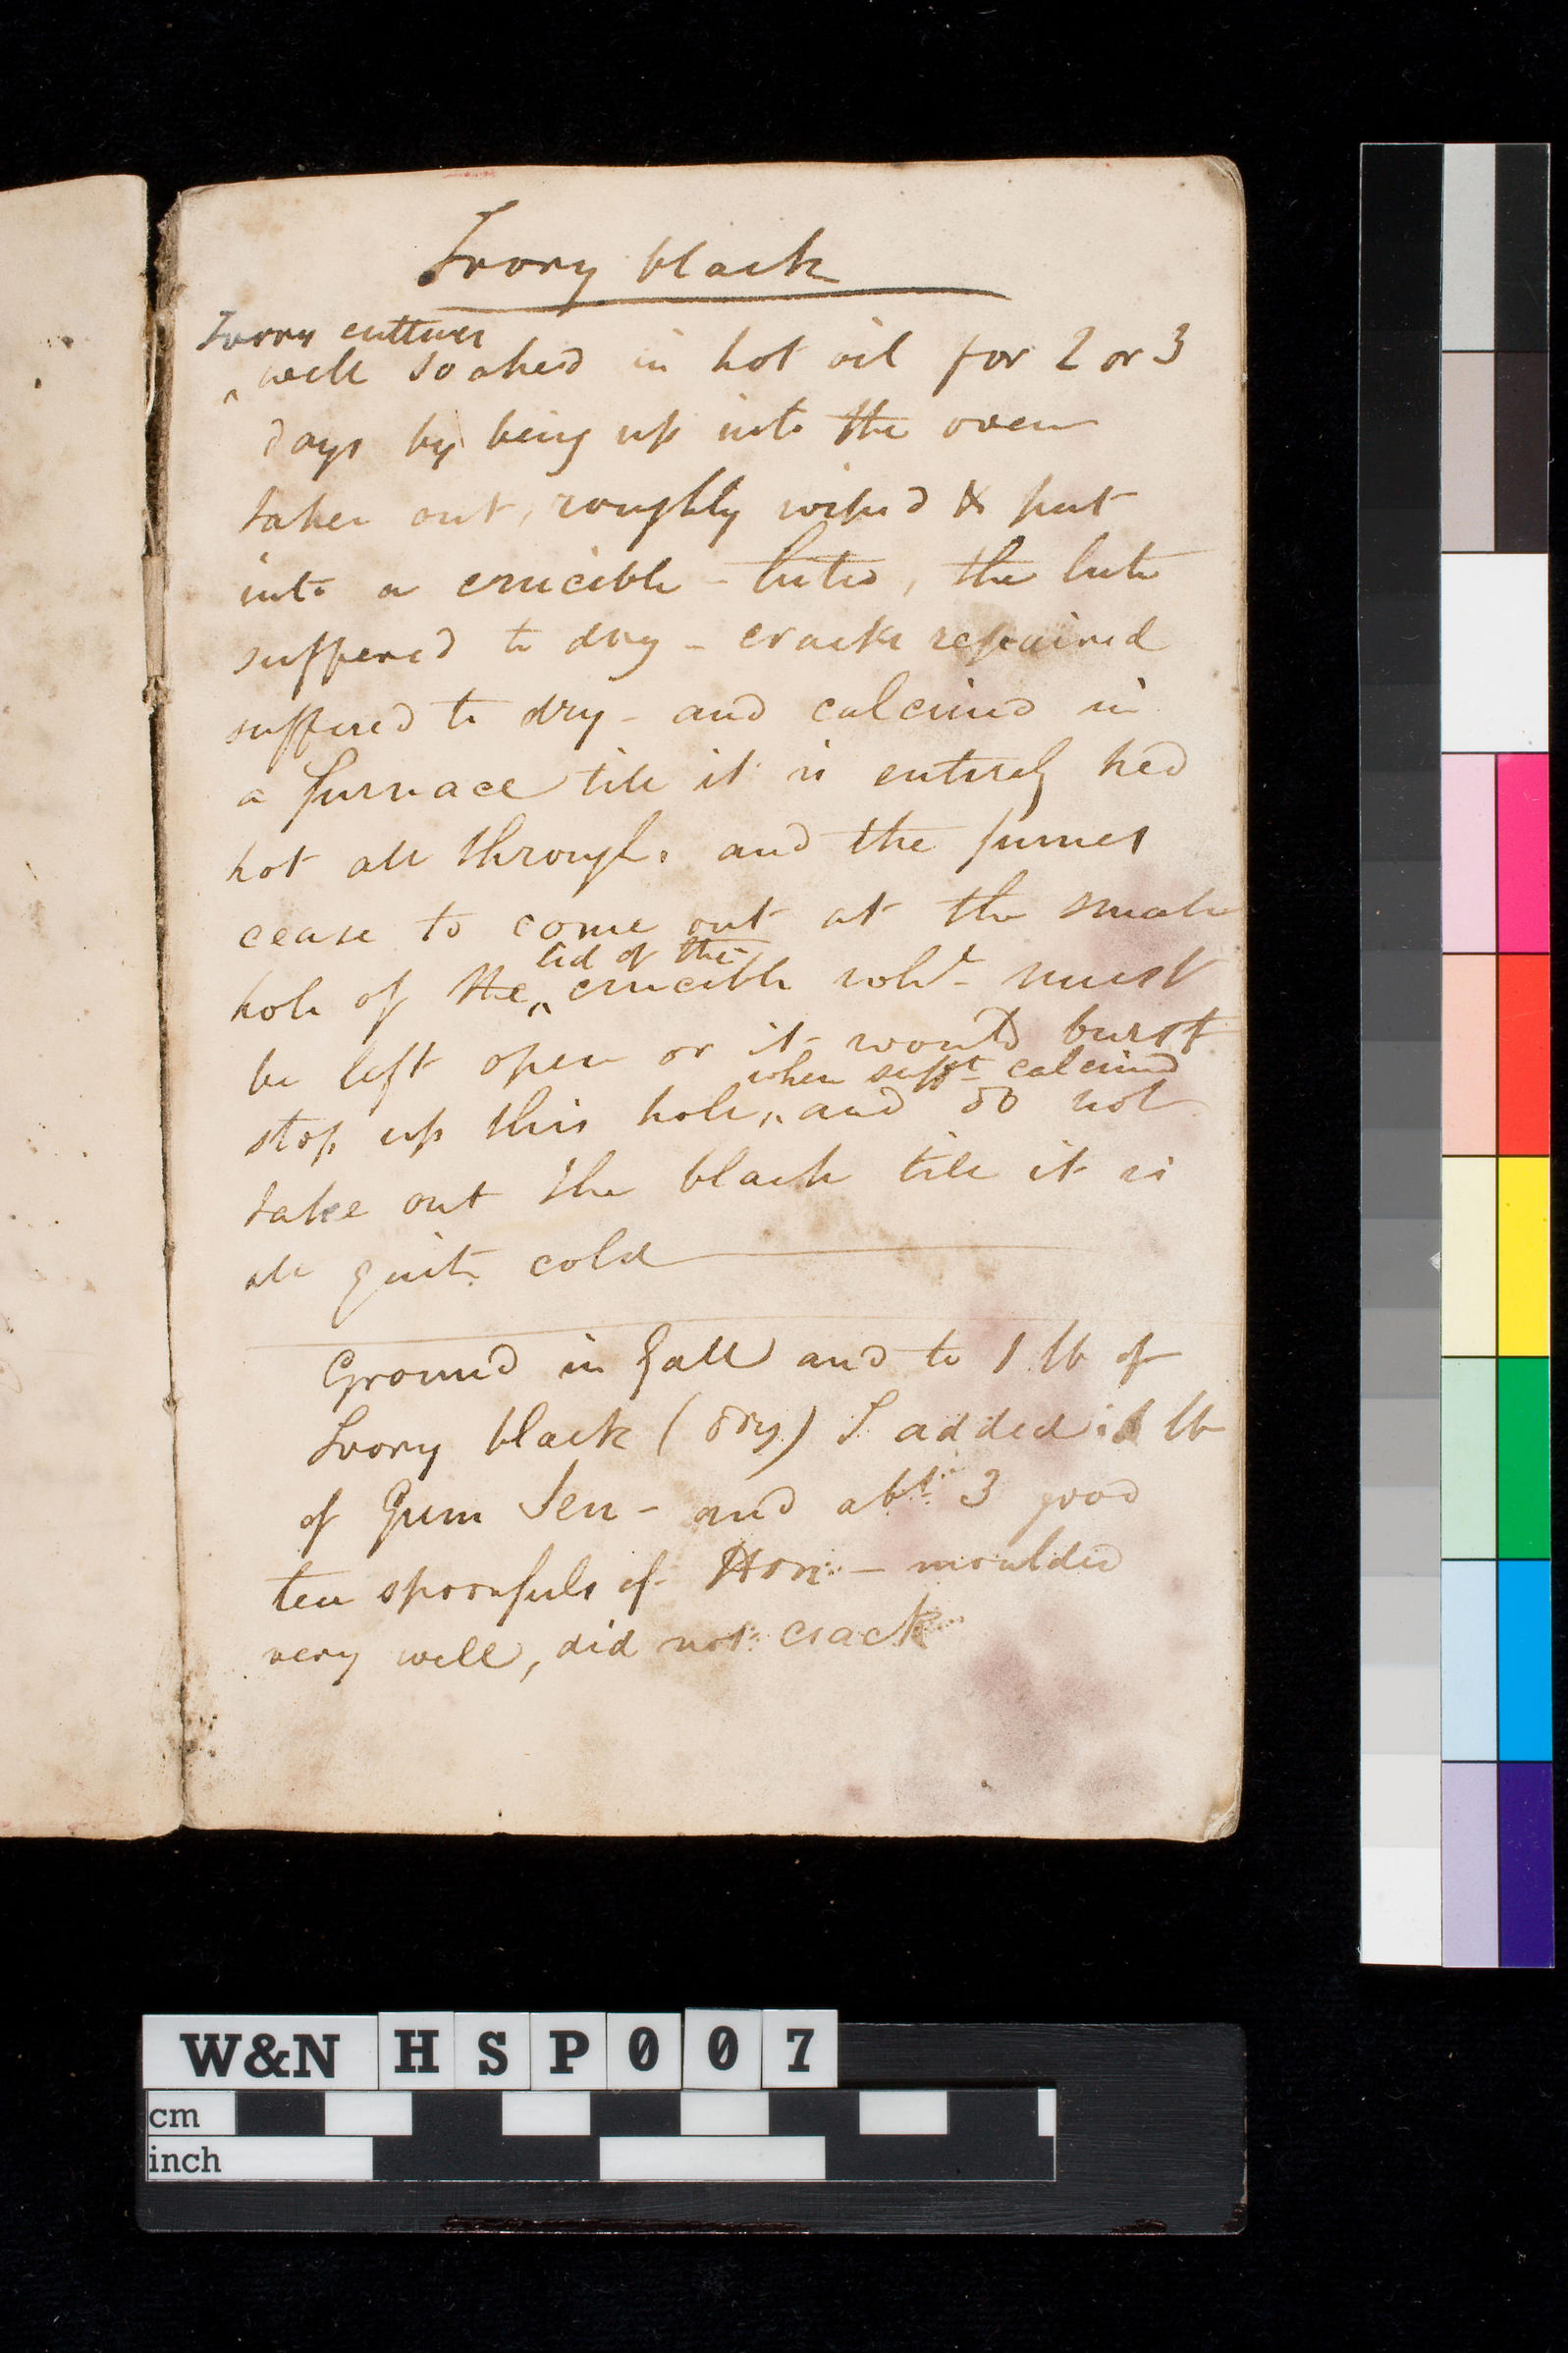 Ivory black
Ivory cuttings
^ well soaked in hot oil for 2 or 3
days by being up into the oven
taken out, roughly wiped & put
into a crucible - luted, the lute
suffered to dry - cracks repaired
suffered to dry - and calcined in
a furnace till it is entirely red
hot all through. and the fumes
cease to come out at the small
lid of the
hole of the ^ crucible whh must
be left open or it would burst
when suffft calcined
stop up this hole, ^ and do not
take out the black till it is
all quite cold
Ground in Gall and to 1 lb of
Ivory black (dry) I added lb
of Gum Sen - and abt 3 good
tea spoonfuls of Hon - moulded
very well, did not crack
W&N HSP007
cm
inch